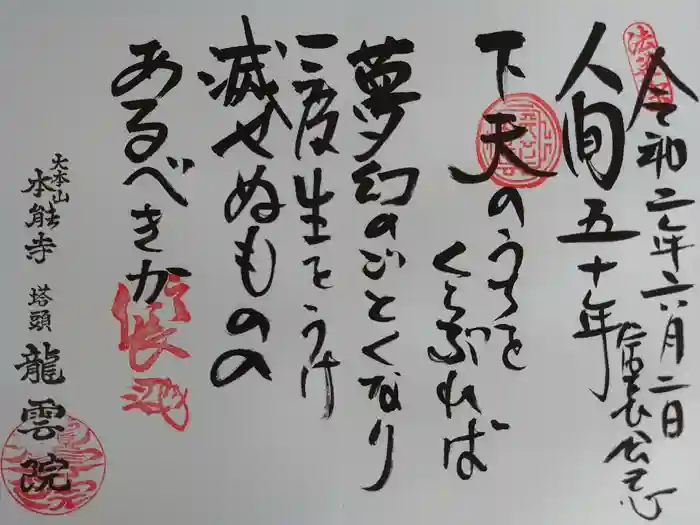 令和二年六月二日
信長公忌
人間五十年
下天のうちを
くらぶれば
夢幻のごとくなり
一度生をうけ
滅せぬものの
あるべきか
信長
大本山
本能寺 塔頭
龍雲院